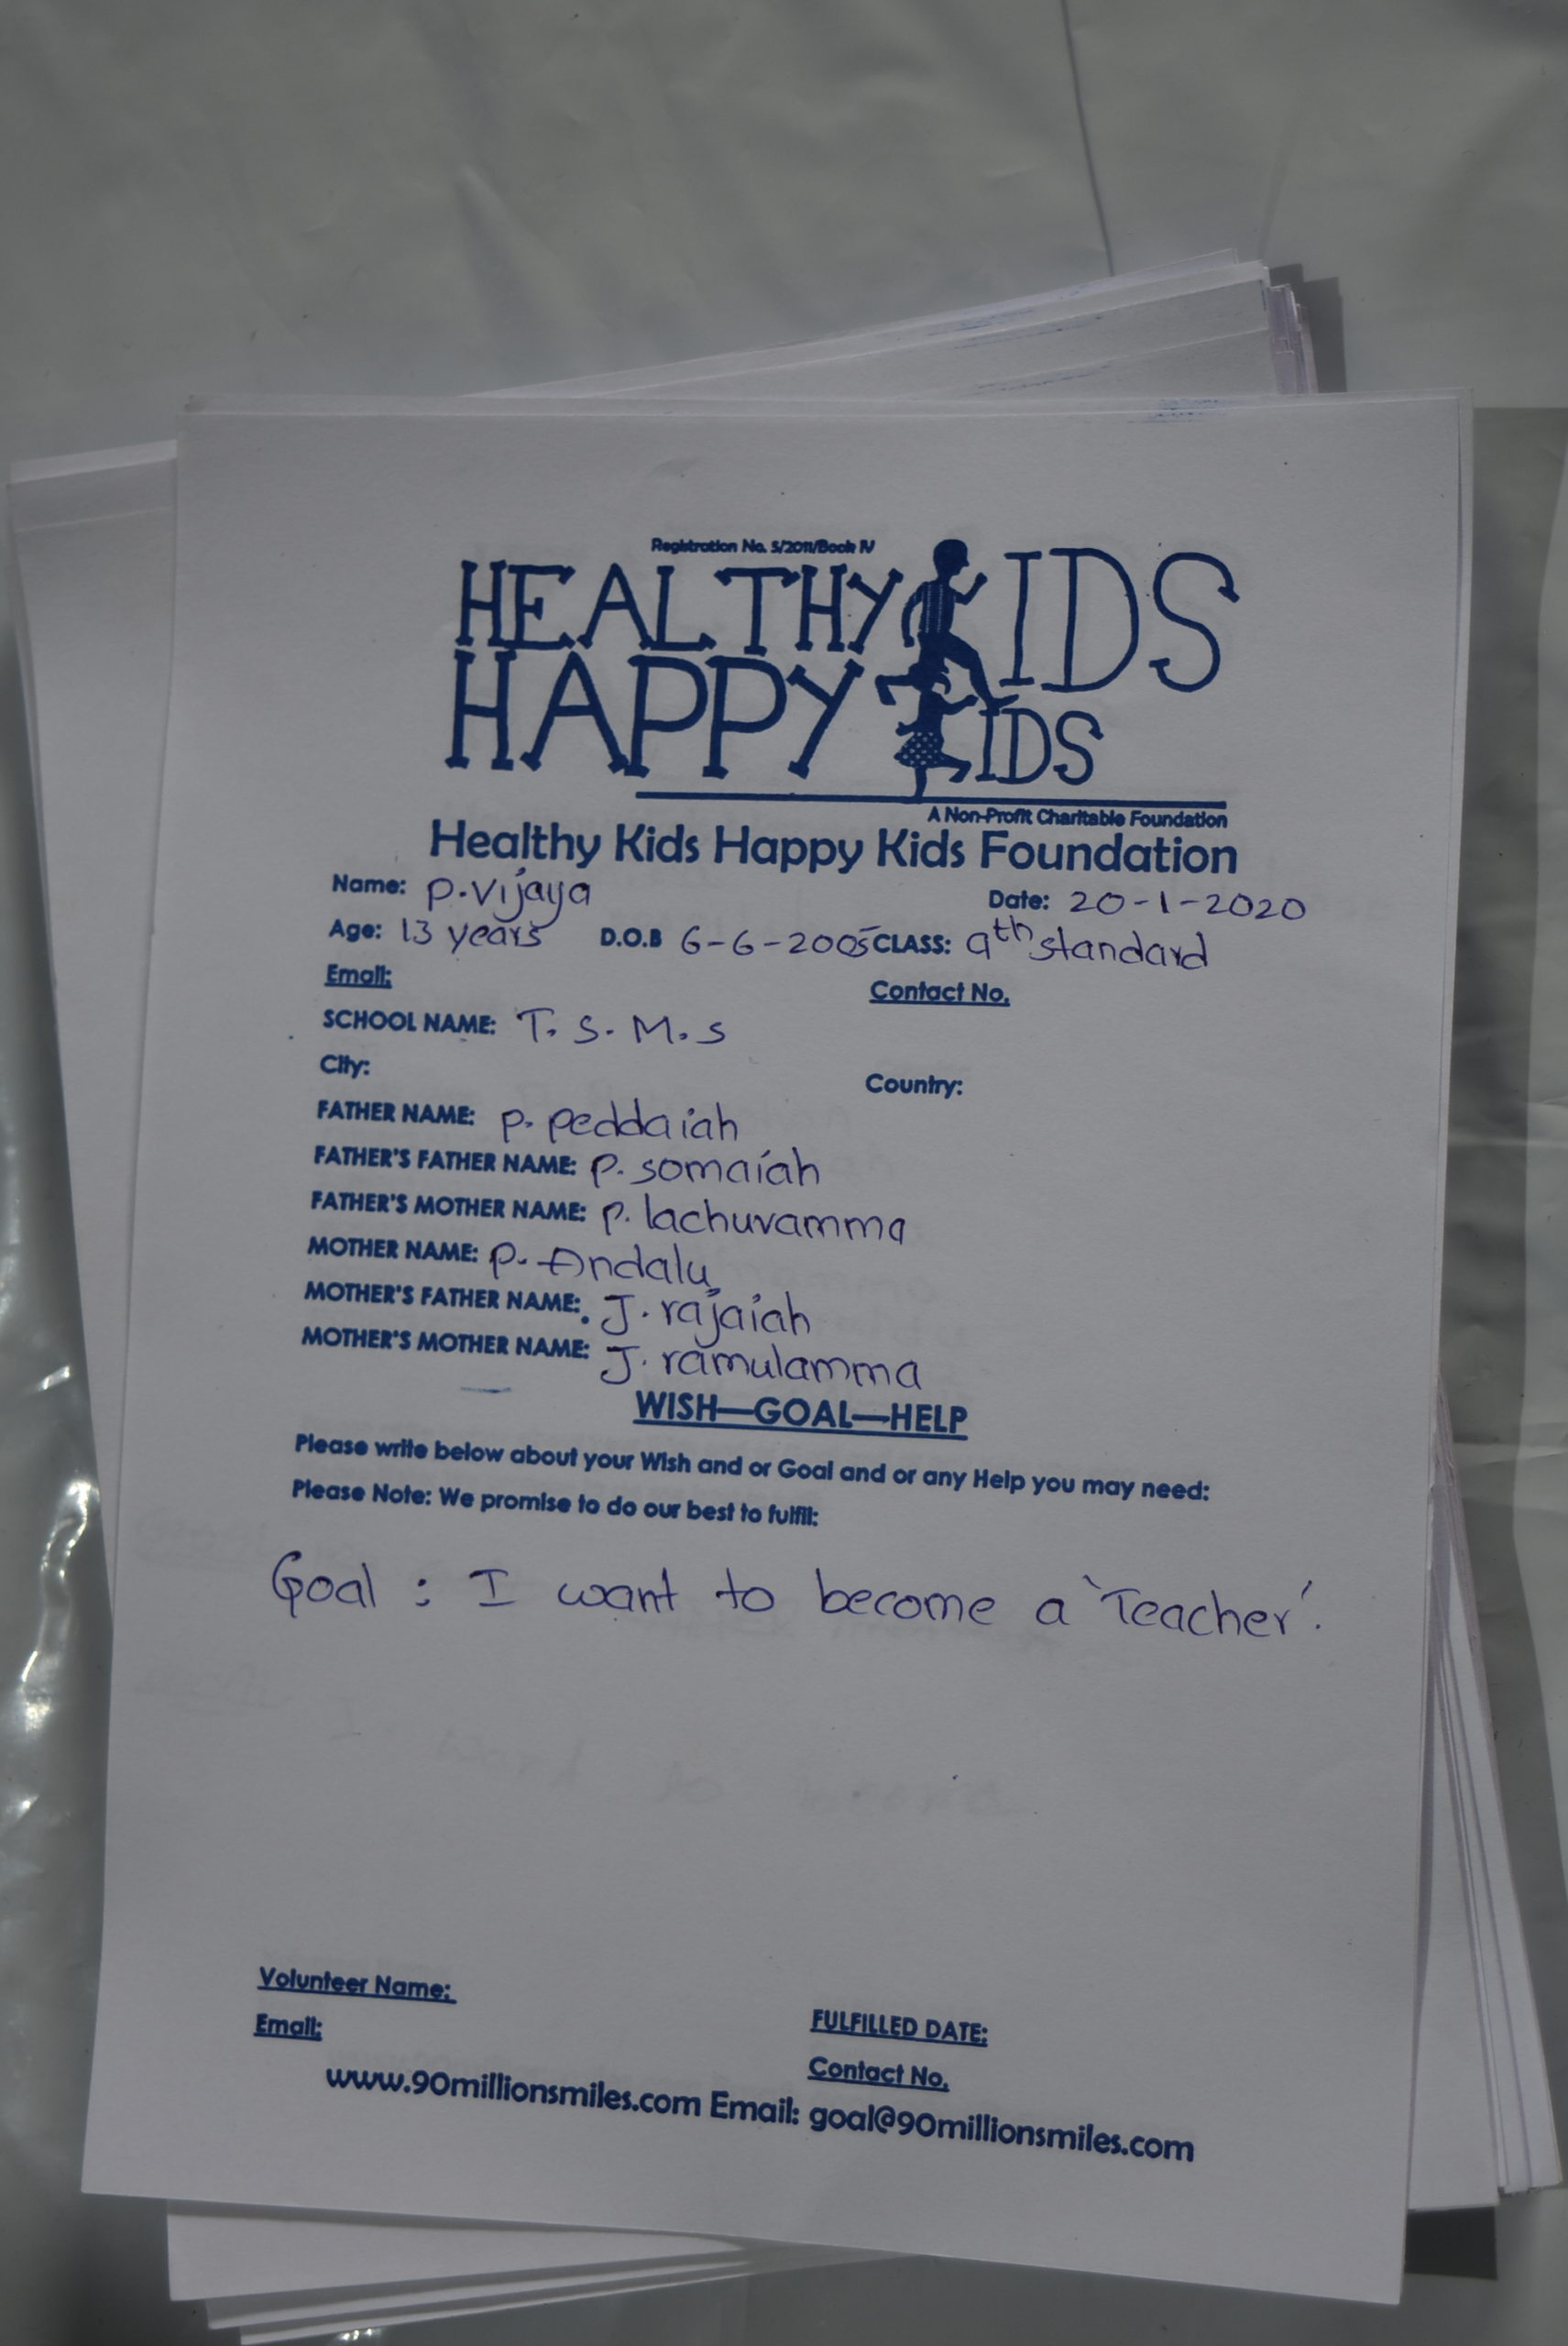 Registration No. 5/2011/Book IV
HEALTHY KIDS
HAPPY KIDS
A Non-Profit Charitable Foundation
Healthy Kids Happy Kids Foundation
Name: P. Vijaya Date: 20-1-2020
Age: 13 years D.O.B 6-6-2005 CLASS: 9th standard
Email: Contact No.
SCHOOL NAME: T. S. M. S
City: Country:
FATHER NAME: P. peddaiah
FATHER'S FATHER NAME: P. somaiah
FATHER'S MOTHER NAME: P. lachuvamma
MOTHER NAME: P. Andalu
MOTHER'S FATHER NAME: J. rajaiah
MOTHER'S MOTHER NAME: J. ramulamma
WISH—GOAL—HELP
Please write below about your Wish and or Goal and or any Help you may need:
Please Note: We promise to do our best to fulfil:
Goal : I want to become a 'Teacher'.
Volunteer Name: FULFILLED DATE:
Email: Contact No.
www.90millionsmiles.com Email: goal@90millionsmiles.com